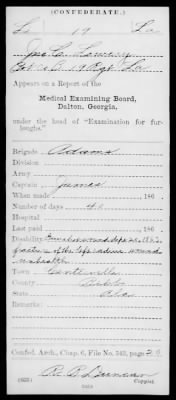 (CONFEDERATE.)
L 19 La
Jno. C.
Co. B. 19 Regt. La
Appears on a Report of the
Medical Examining Board,
Dalton, Georgia,
under the head of "Examination for fur-
loughs."
Brigade, Adams
Division
Army
Captain, James
When made , 186 .
Number of days 40
Hospital
Last paid , 186 .
Disability, Gunshot wound Sept 20, 1863,
fracture of the left wound
unhealed
Town, Centreville
County,
State, Ala
Remarks:
Confed. Arch., Chap. 6, File No. 343, page 28
(635)
R. B. Duncan
Copyist.